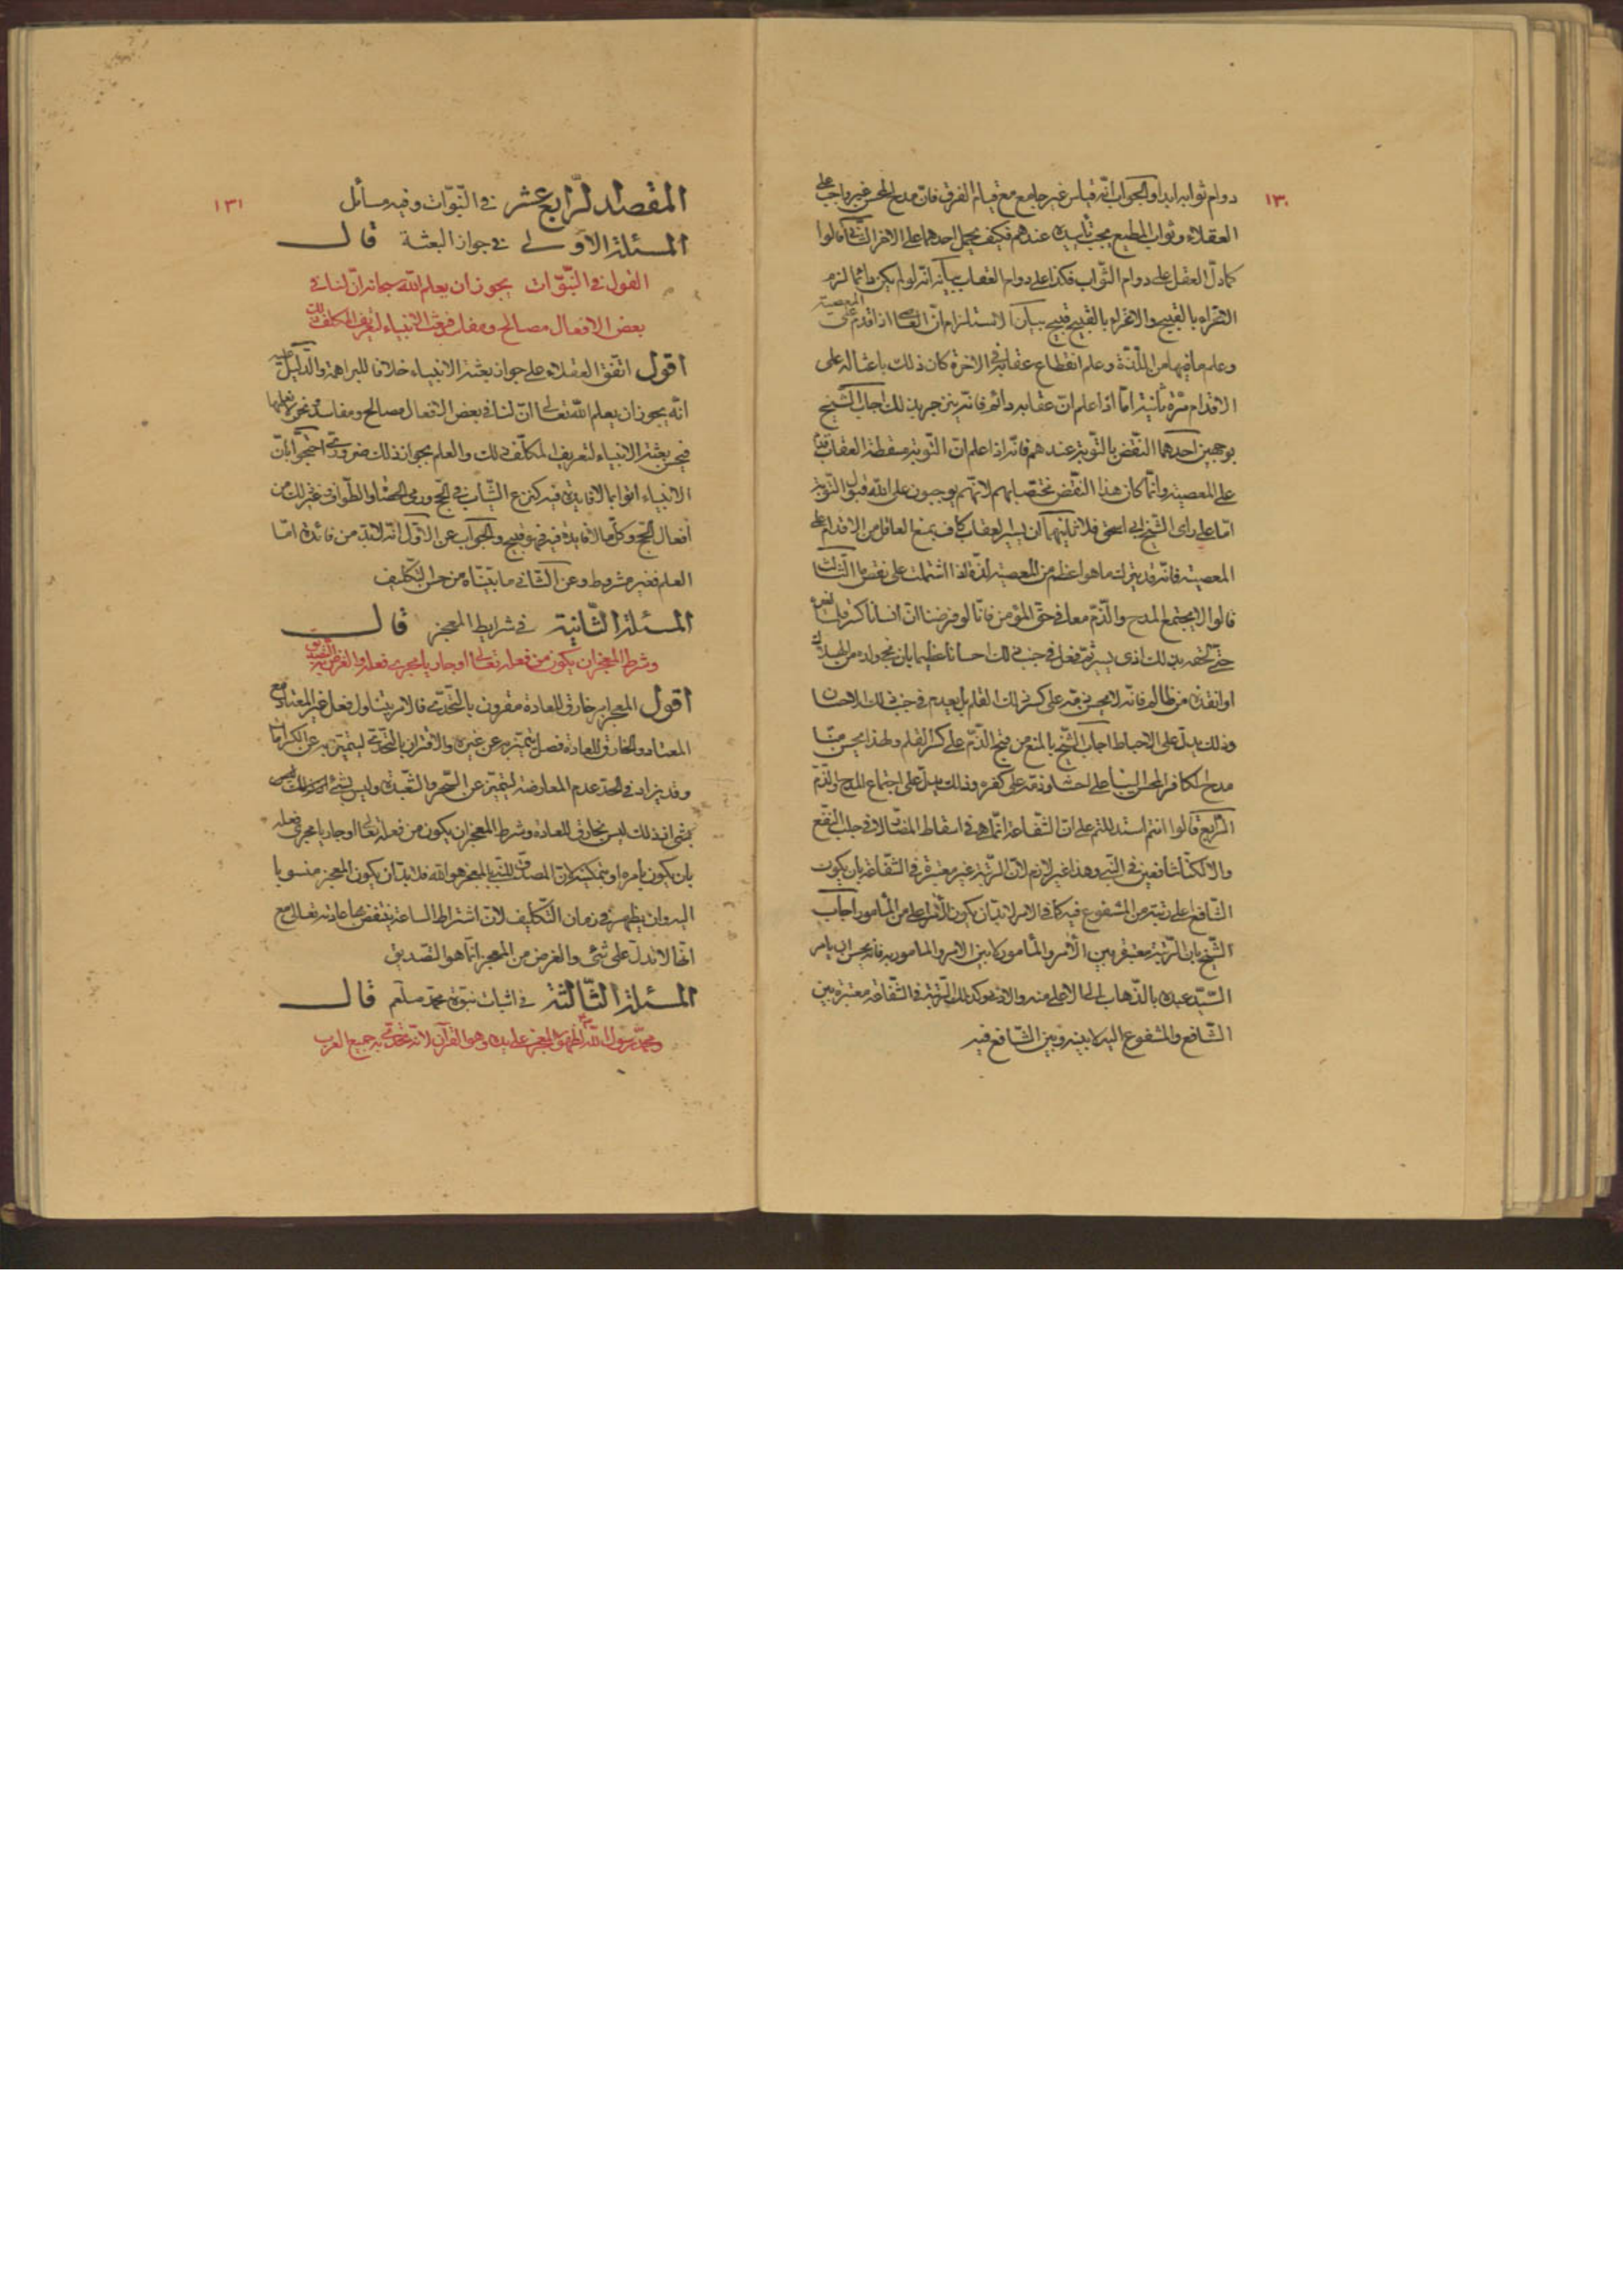 ١٣٠
دوام ثوابه ابدا والجواب انّه قياس غير جامع مع قيام الفرق فانّ مدح المحسن غير واجب على
العقلاء وثواب المطيع يجب تأبيده عندهم فكيف يحمل احدهما على الاخر الثّانى قالوا
كما دلّ العقل على دوام الثّواب فكذا على دوام العقاب بيانه انّه لو لم يكن دائما لزم
الاغراء بالقبيح والاغراء بالقبيح قبيح بيان الاستلزام انّ العاصى اذا اقدم على المعصية
وعلم ما فيها من اللّذّة وعلم انقطاع عقابه فى الاخرة كان ذلك باعثا له على
الاقدام مرّة ثانية امّا اذا علم انّ عقابه دائم فانّه ينزجر بذلك اجاب الشيخ
بوجهين احدهما النّقض بالتّوبة عندهم فانّه اذا علم انّ التّوبة مسقطة العقاب
على المعصية وانّما كان هذا النّقض مختصّا بهم لانّهم يوجبون على الله قبول التّوبة
امّا على راى الشّيخ ابى اسحق فلا ثانيهما ان يسير العقاب كاف يمنع العاقل من الاقدام على
المعصية فانّه قد يترك ما هو اعظم من المعصية لذّة اذا اشتملت على نقص ما الثّالث
قالوا لا يجتمع المدح والذّم معا فى حقّ المؤمن فانّا لو فرضنا انّ انسانا كسر قلما لغيره
حتّى لحقه بذلك اذى يسير ثمّ فعل فى جنب ذلك احسانا عظيما بان نجى ولده من الهلاك
او انقذه من ظالم فانّه لا يحسن ذمّه على كسر ذلك القلم بل يعدم فى جنب ذلك الاحسان
وذلك يدلّ على الاحباط اجاب الشّيخ بالمنع من قبح الذّم على كسر القلم ولهذا يحسن منّا
مدح الكافر المحسن الينا على احسانه وذمّه على كفره وذلك يدلّ على اجتماع المدح والذّم
الرّابع قالوا انتم استدللتم على انّ الشّفاعة انّما هى فى اسقاط المضارّ لا فى جلب النّفع
والا لكنّا شافعين فى النّبى وهذا غير لازم لانّ الرّتبة غير معتبرة فى الشّفاعة بان يكون
الشّافع اعلى رتبة من المشفوع فيه كما فى الامر لا بدّ ان يكون الآمر اعلى من المأمور اجاب
الشّيخ بانّ الرّتبة معتبرة بين الآمر والمأمور لا بين الامر والمامور به فانّه يحسن ان يامر
السّيّد عبده بالذّهاب الى الاعلى منه والادون وكذلك الرّتبة فى الشّفاعة معتبرة بين
الشّافع والمشفوع اليه لا بينه وبين الشّافع فيه
١٣١
المقصد الرّابع عشر فى النّبوّات وفيه مسائل
المسئلة الاولى فى جواز البعثة قال
القول فى النّبوّات يجوز ان يعلم الله سبحانه انّ لنا فى
بعض الافعال مصالح ومفاسد فيبعث الانبياء لتعريف المكلّف ذلك
اقول اتّفق العقلاء على جواز بعثة الانبياء خلافا للبراهمة والدّليل عليه
انّه يجوز ان يعلم الله تعالى انّ لنا فى بعض الافعال مصالح ومفاسد ونحن لا نعلمها
فيحسن بعثة الانبياء لتعريف المكلّف ذلك والعلم بجواز ذلك ضرورىّ احتجّوا بانّ
الانبياء اتوا بما لا فايدة فيه كنزع الثّياب فى الحج ورمى الحصا والطّواف وغير ذلك من
افعال الحجّ وكلّ ما لا فايدة فيه فهو قبيح والجواب عن الاوّل انّه لا بدّ من فائدة امّا
العلم فغير مشروط وعن الثّانى ما بيّنّاه من حسن التّكليف
المسئلة الثّانية فى شرايط المعجز قال
وشرط المعجز ان يكون من فعله تعالى او جاريا مجرى فعله والغرض به التّصديق
اقول المعجز امر خارق للعادة مقرون بالتّحدّى فالامر يتناول فعل غير المعتاد ومنع
المعتاد والخارق للعادة فصل يتميّز به عن غيره والاقتران بالتّحدّى ليتميّز به عن الكرامات
وقد يزاد فى الحدّ عدم المعارضة ليتميّز عن السّحر والشّعبذة وليس
بشىء اذ ذلك ليس بخارق للعادة وشرط المعجز ان يكون من فعله تعالى او جاريا مجرى فعله
بان يكون بامره او بتمكينه لانّ المصدّق للنّبى بالمعجز هو الله فلا بدّ ان يكون المعجز منسوبا
اليه وان يظهر فى زمان التّكليف لانّ اشتراط السّاعة ينتقض بها عادته تعالى مع
انّها لا تدلّ على شئى والغرض من المعجز انّما هو التّصديق
المسئلة الثّالثة فى اثبات نبوّة محمّد صلعم قال
ومحمّد رسول الله لظهور المعجز على يده وهو القرآن لانّه تحدّى به جميع العرب